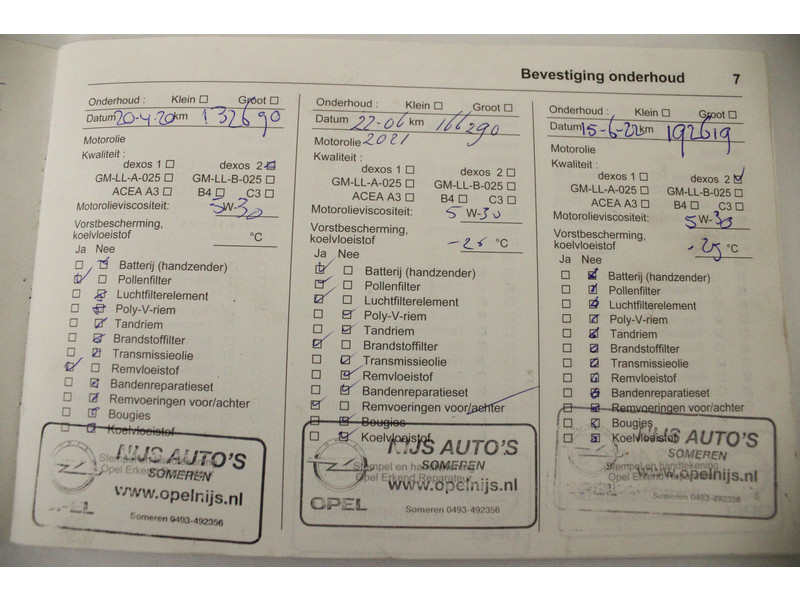 Bevestiging onderhoud 7
Onderhoud : Klein Groot
Datum 20-4-20 km 132690
Motorolie
Kwaliteit :
dexos 1 dexos 2
GM-LL-A-025 GM-LL-B-025
ACEA A3 B4 C3
Motorolieviscositeit: 5W-30
Vorstbescherming,
koelvloeistof °C
Ja Nee
Batterij (handzender)
Pollenfilter
Luchtfilterelement
Poly-V-riem
Tandriem
Brandstoffilter
Transmissieolie
Remvloeistof
Bandenreparatieset
Remvoeringen voor/achter
Bougies
Koelvloeistof
Stempel en
Opel Erkend
NIJS AUTO'S
SOMEREN
www.opelnijs.nl
Someren 0493-492356
Onderhoud : Klein Groot
Datum 22-06 km 166290
Motorolie 2021
Kwaliteit :
dexos 1 dexos 2
GM-LL-A-025 GM-LL-B-025
ACEA A3 B4 C3
Motorolieviscositeit: 5 W-30
Vorstbescherming,
koelvloeistof -26 °C
Ja Nee
Batterij (handzender)
Pollenfilter
Luchtfilterelement
Poly-V-riem
Tandriem
Brandstoffilter
Transmissieolie
Remvloeistof
Bandenreparatieset
Remvoeringen voor/achter
Bougies
Koelvloeistof
NIJS AUTO'S
Stempel en handtekening
SOMEREN
Opel Erkend Reparateur
www.opelnijs.nl
OPEL
Someren 0493-492356
Onderhoud : Klein Groot
Datum 15-6-22 km 192619
Motorolie
Kwaliteit :
dexos 1 dexos 2
GM-LL-A-025 GM-LL-B-025
ACEA A3 B4 C3
Motorolieviscositeit: 5 W-30
Vorstbescherming,
koelvloeistof -25 °C
Ja Nee
Batterij (handzender)
Pollenfilter
Luchtfilterelement
Poly-V-riem
Tandriem
Brandstoffilter
Transmissieolie
Remvloeistof
Bandenreparatieset
Remvoeringen voor/achter
Bougies
Koelvloeistof
NIJS AUTO'S
SOMEREN
Stempel en handtekening
Opel Erkend
www.opelnijs.nl
Someren 0493-492356